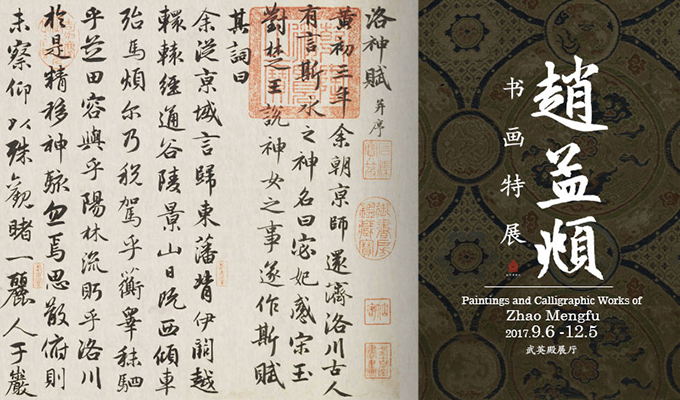 洛神賦 并序
黄初三年余朝京師還濟洛川古人
有言斯水之神名曰宓妃感宋玉
對楚王說神女之事遂作斯賦
其詞曰
余從京域言歸東藩背伊闕越
轘轅經通谷陵景山日既西傾車
殆馬煩尔乃税駕乎蘅皋秣駟
乎芝田容與乎陽林流眄乎洛川
於是精移神駭忽焉思散俯則
未察仰以殊觀睹一麗人于巖
趙孟頫
书画特展
Paintings and Calligraphic Works of
Zhao Mengfu
2017.9.6 -12.5
武英殿展厅